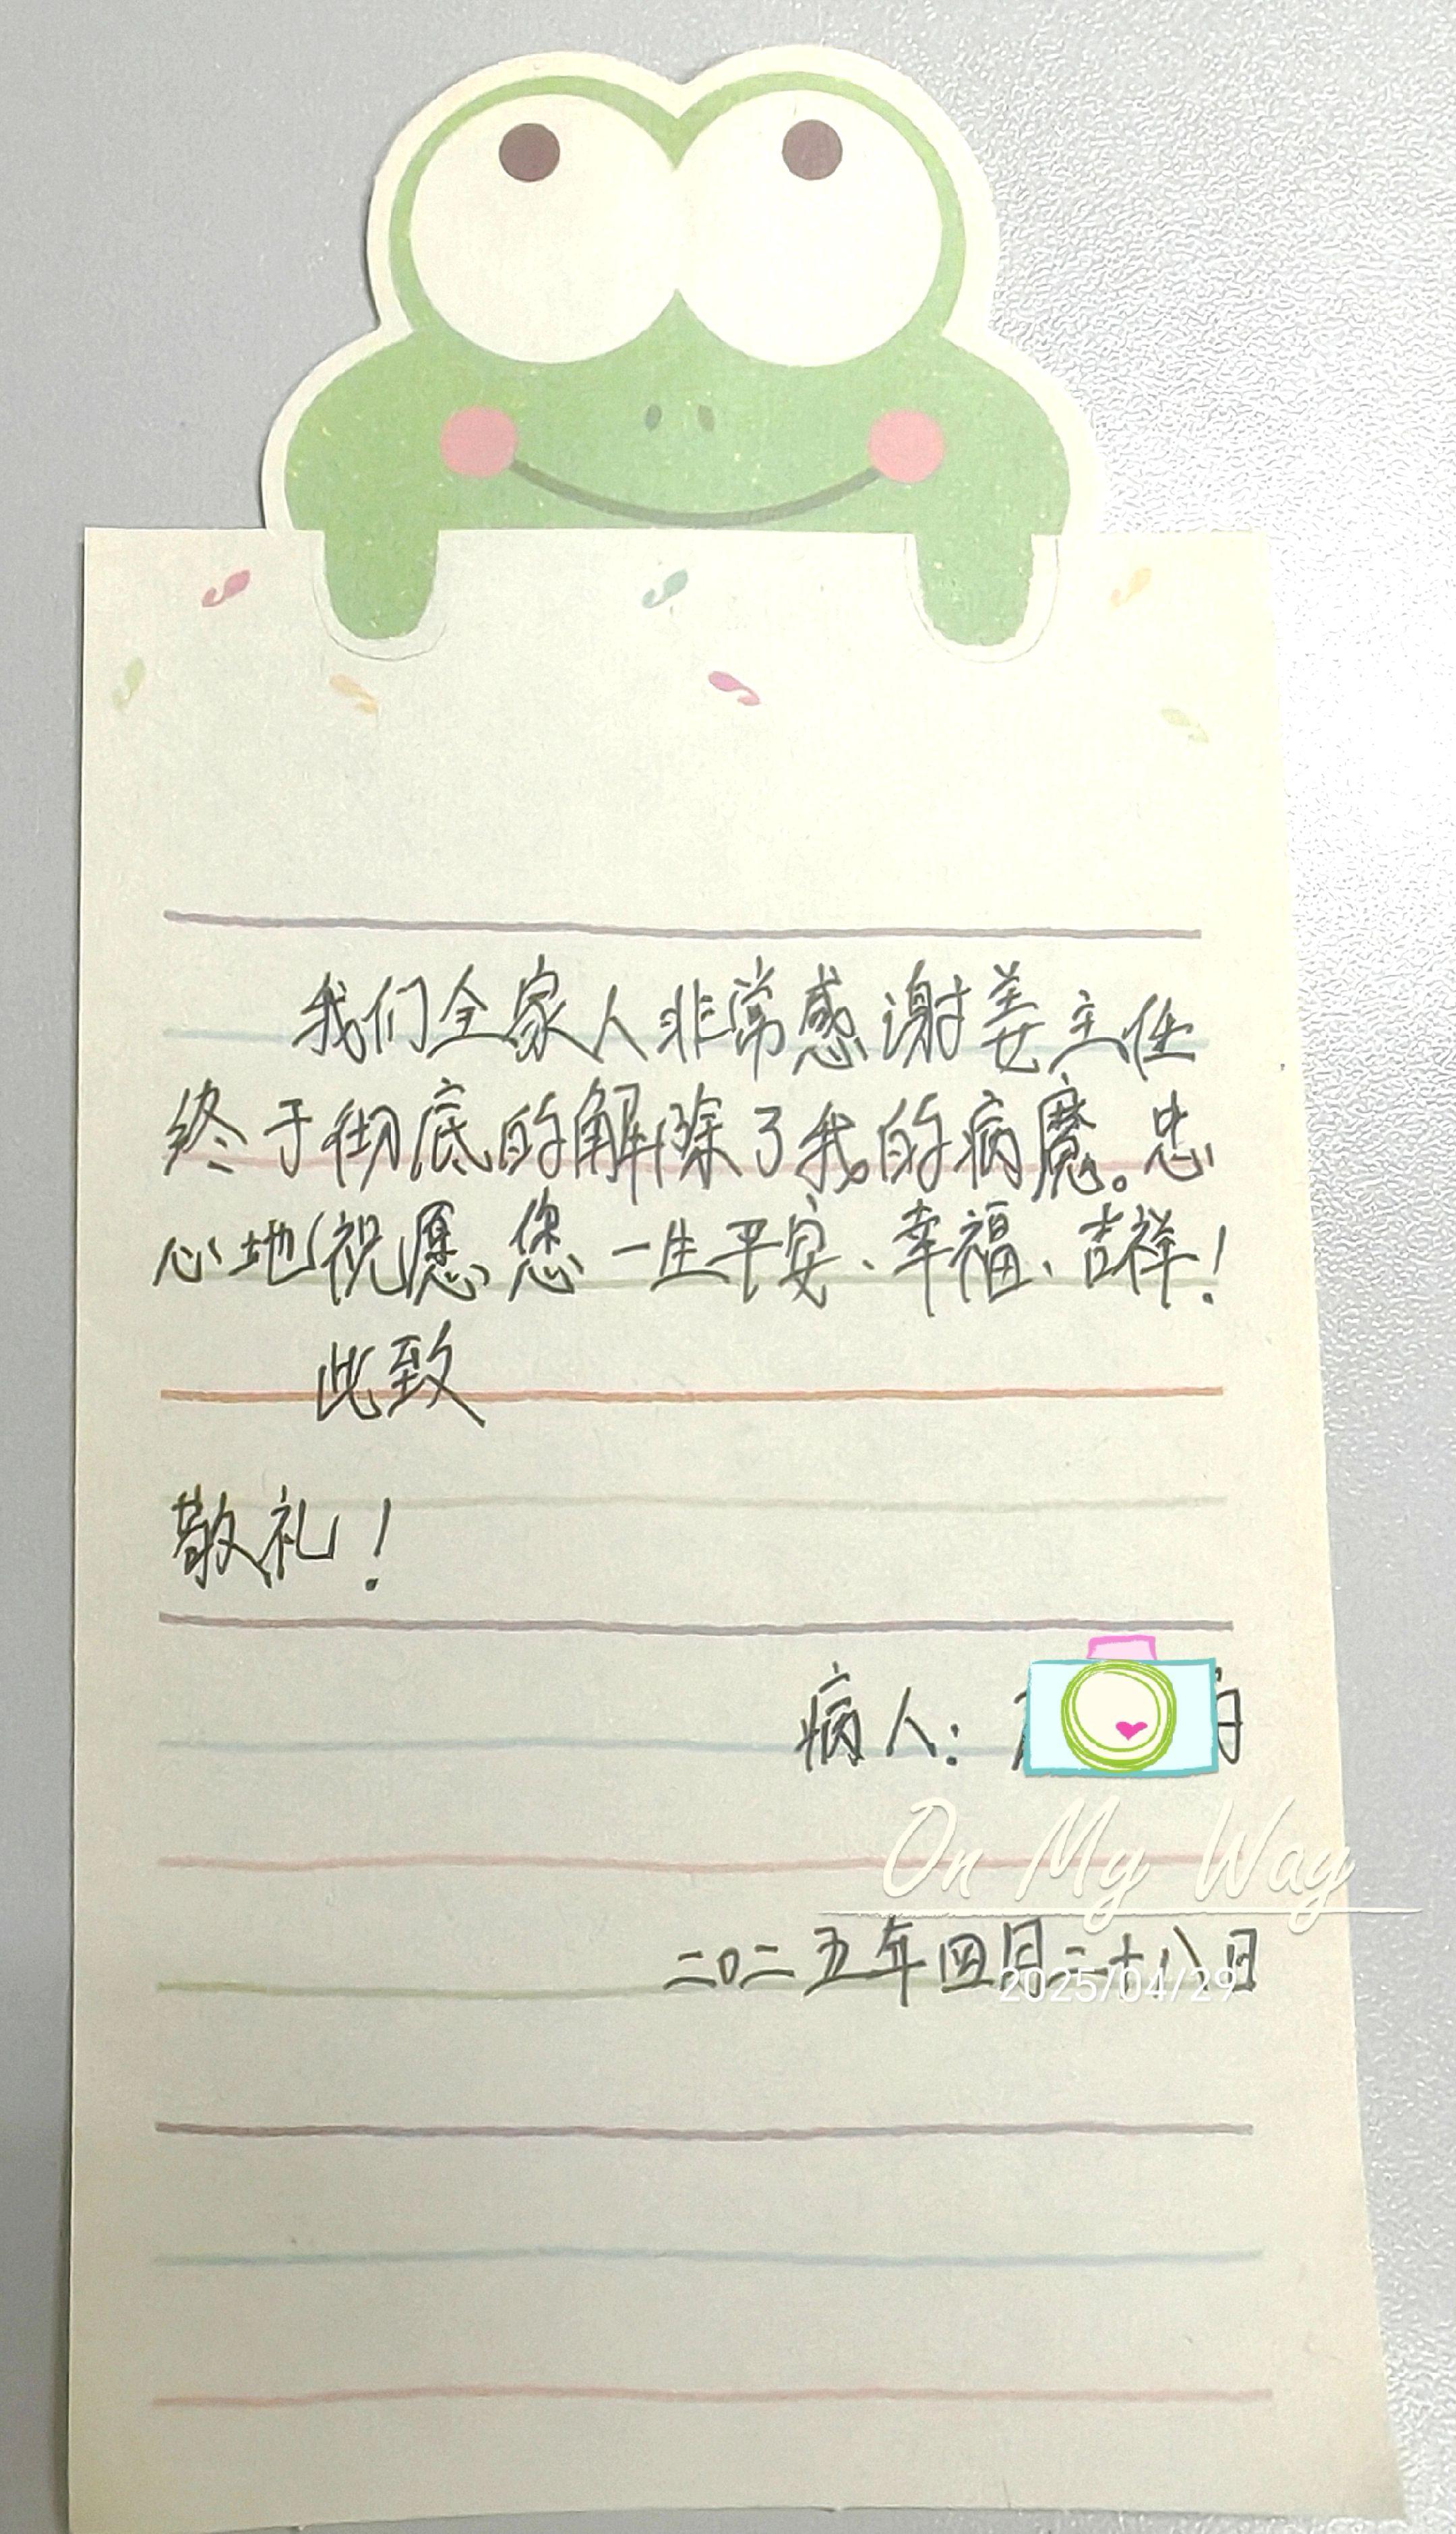 我们全家人非常感谢姜主任
终于彻底的解除了我的病魔。忠
心地祝愿您一生平安、幸福、吉祥！
此致
敬礼！
病人：
On My Way
二〇二五年四月二十八日
2025/04/29